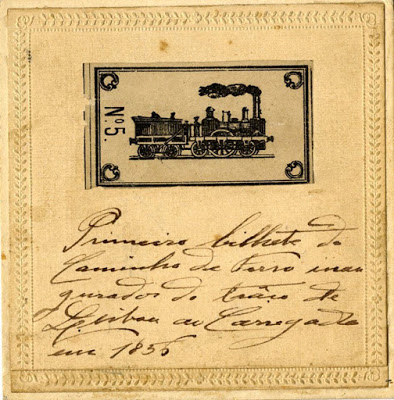 Nº 5.
Primeiro bilhete do
Caminho de Ferro inau
gurados do traço de
Lisboa ao Carregado
em 1856